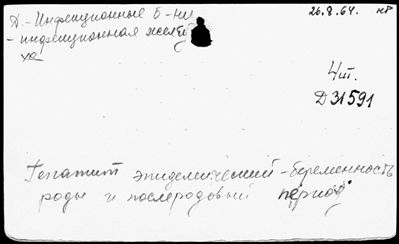 Д.-Инфекционные б-ни
26.8.64. нв
- инфекционная желту
ха
4 ит.
Д 31591
Гепатит эпидемический - беременность
роды и послеродовый период